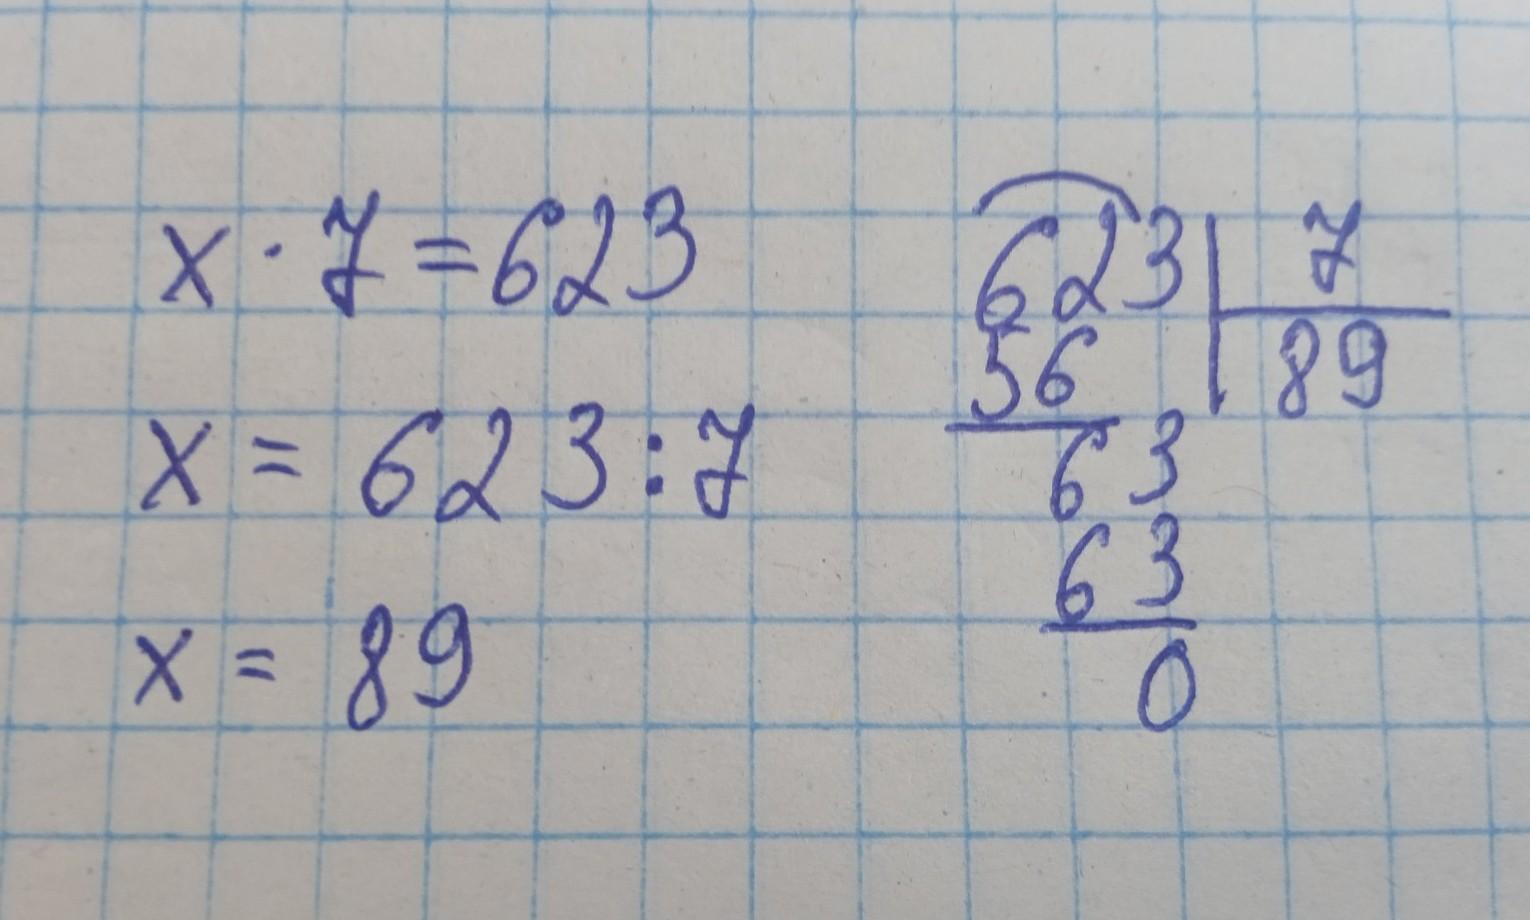 x · 7 = 623
x = 623 : 7
x = 89
623 | 7
56 | 89
63
63
0